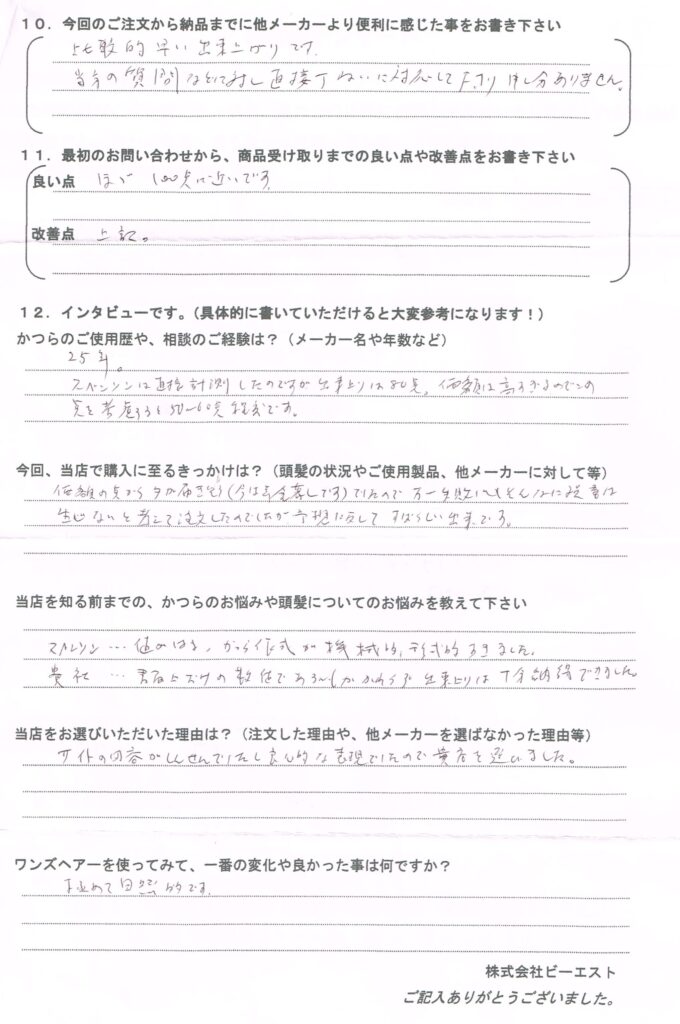 １０．今回のご注文から納品までに他メーカーより便利に感じた事をお書き下さい
比較的早い出来上がりです。
当方の質問などに対し直接丁ねいに対応して下さり申し分ありません。
１１．最初のお問い合わせから、商品受け取りまでの良い点や改善点をお書き下さい
良い点 ほぼ 100点に近いです。
改善点 上記。
１２．インタビューです。（具体的に書いていただけると大変参考になります！）
かつらのご使用歴や、相談のご経験は？（メーカー名や年数など）
25年。
スペンソンは直接計測したのですが出来上りは80点、価額は高すぎるのでこの
点を考慮すると50～60点程度です。
今回、当店で購入に至るきっかけは？（頭髪の状況やご使用製品、他メーカーに対して等）
価額の点から （今は 全 しです）でしたので万一失敗してもそんなに損害は
生じないと考えて注文したのでしたが予想に反してすばらしい出来です。
当店を知る前までの、かつらのお悩みや頭髪についてのお悩みを教えて下さい
スペンソン … 値がはる、かつら作式が機械的、形式的すぎました。
貴社 … 書面上だけの数値であるにもかかわらず出来上りは十分納得できました。
当店をお選びいただいた理由は？（注文した理由や、他メーカーを選ばなかった理由等）
サイトの内容がしんせんでしたし良心的な表現でしたので貴店を選びました。
ワンズヘアーを使ってみて、一番の変化や良かった事は何ですか？
極めて自然的です。
株式会社ビーエスト
ご記入ありがとうございました。